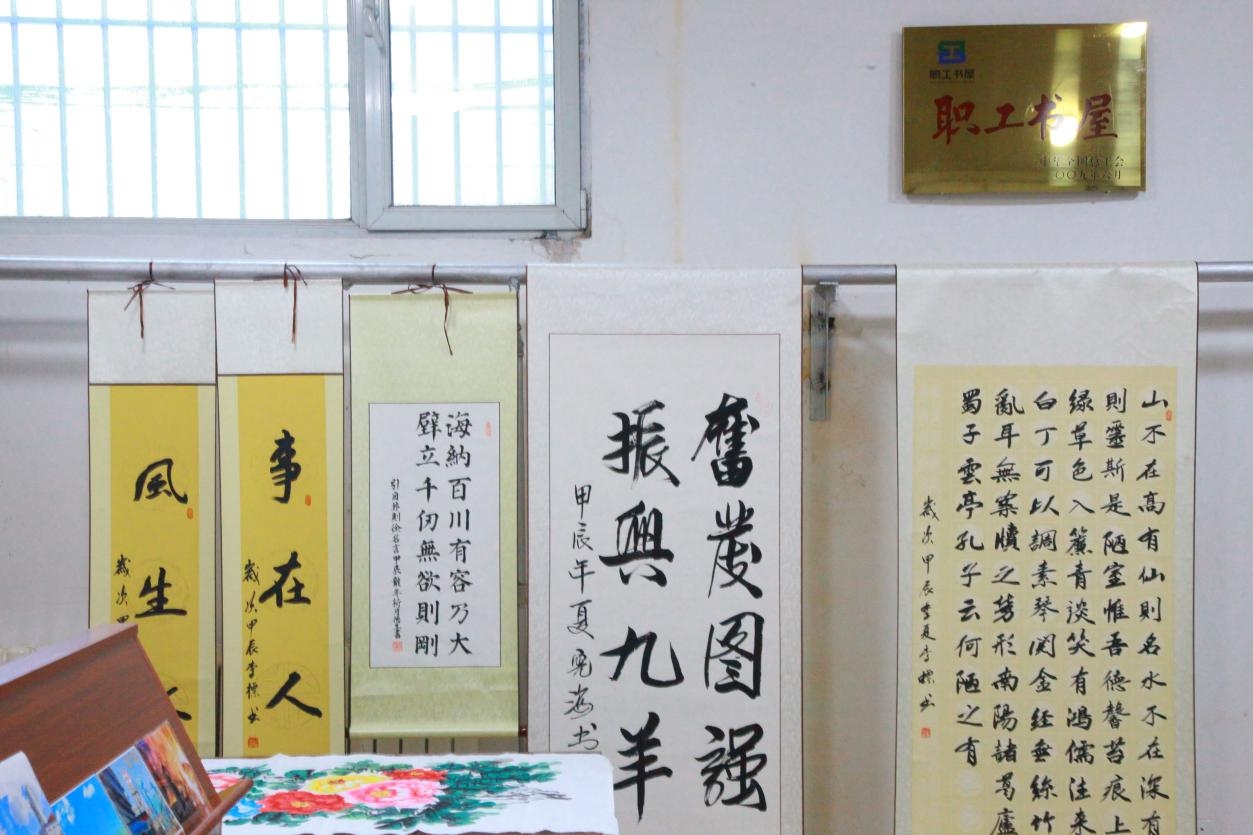 职工书屋
职工书屋
中华全国总工会
〇〇九年六月
風生
歲次甲
事在人
歲次甲辰李標书
海納百川有容乃大
壁立千仞無欲則剛
引用林则徐名言甲辰龍年
奮發图强
振興九羊
甲辰年夏海书
山不在高有仙則名水不在深有
則靈斯是陋室惟吾德馨苔痕上
绿草色入簾青淡笑有鴻儒往来
白丁可以調素琴阅金经無絲竹
亂耳無案牘之劳形南陽諸葛廬
蜀子雲亭孔子云何陋之有
歲次甲辰季夏李標书